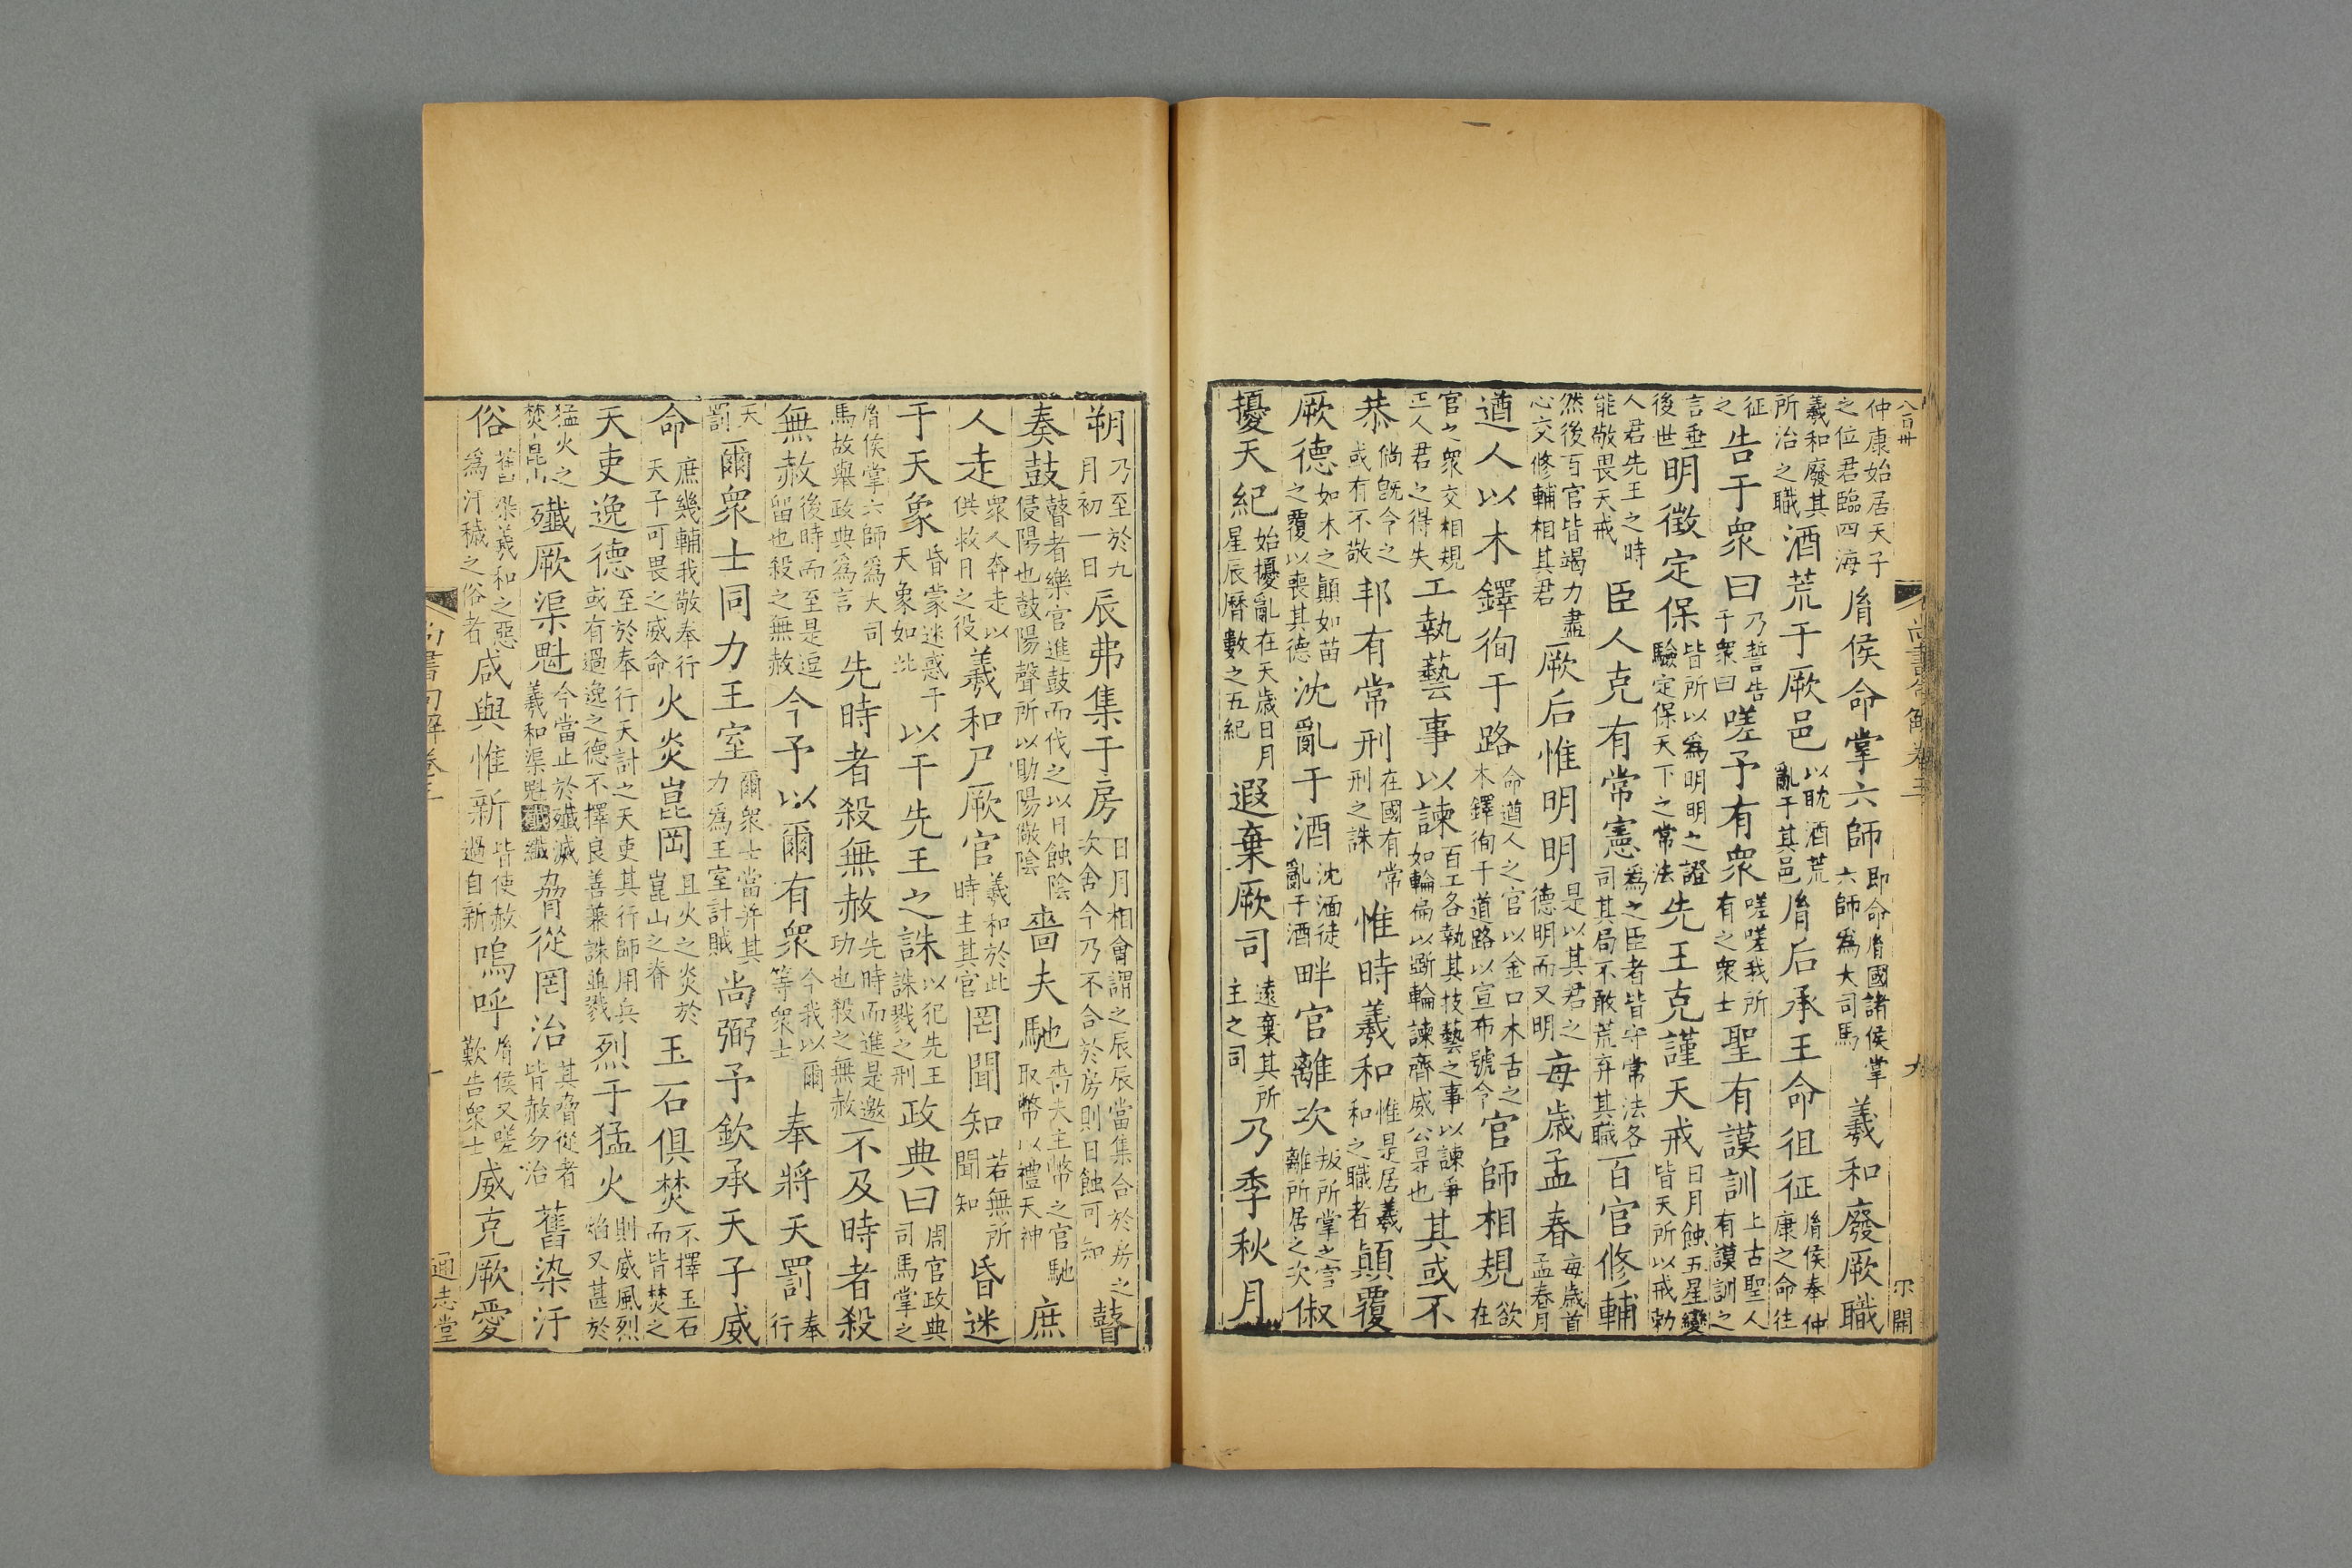 八百卅
尚書句解卷三 九 開
仲康始居天子之位君臨四海胤侯命掌六師即命胤國諸侯掌六師爲大司馬羲和廢厥職
羲和廢其所治之職酒荒于厥邑以耽酒荒亂于其邑胤后承王命徂征胤侯奉仲康之命往
征之告于衆曰乃誓告于衆曰嗟予有衆嗟嗟我所有之衆士聖有謨訓上古聖人有謨訓之
言垂後世明徵定保皆所以爲明明之證驗定保天下之常法先王克謹天戒日月蝕五星變皆天所以戒勑
人君先王之時能敬畏天戒臣人克有常憲爲之臣者皆守常法各司其局不敢荒弃其職百官修輔
然後百官皆竭力盡心交修輔相其君厥后惟明明是以其君之德明而又明每歲孟春每歲首孟春月
遒人以木鐸徇于路命遒人之官以金口木舌之木鐸徇于道路以宣布號令官師相規欲在
官之衆交相規正人君之得失工執藝事以諫百工各執其技藝之事以諫爭如輪偏以斲輪諫齊威公是也其或不
恭倘旣令之或有不敬邦有常刑在國有常刑之誅惟時羲和惟是居羲和之職者顛覆
厥德如木之顛如苗之覆以喪其德沈亂于酒沈湎徒亂于酒畔官離次叛所掌之官離所居之次俶
擾天紀始擾亂在天歲日月星辰曆數之五紀遐棄厥司遠棄其所主之司乃季秋月
朔乃至於九月初一日辰弗集于房日月相會謂之辰辰當集合於房之次舍今乃不合於房則日蝕可知瞽
奏鼓瞽者樂官進鼓而伐之以日蝕陰侵陽也鼓陽聲所以助陽儆陰嗇夫馳嗇夫主幣之官馳取幣以禮天神庶
人走衆人奔走以供救日之役羲和尸厥官羲和於此時主其官罔聞知若無所聞知昏迷
于天象昏蒙迷惑于天象如此以干先王之誅以犯先王誅戮之刑政典曰周官政典司馬掌之
胤侯掌六師爲大司馬故舉政典爲言先時者殺無赦先時而進是邀功也殺之無赦不及時者殺
無赦後時而至是逗留也殺之無赦今予以爾有衆今我以爾等衆士奉將天罰奉行
天罰爾衆士同力王室爾衆士當并其力爲王室討賊尚弼予欽承天子威
命庶幾輔我敬奉行天子可畏之威命火炎崑岡且火之炎於崑山之脊玉石俱焚不擇玉石而皆焚之
天吏逸德至於奉行天討之天吏其行師用兵或有過逸之德不擇良善蒹誅並戮烈于猛火則威風烈焰又甚於
猛火之焚昆山殲厥渠魁今當止於殲滅羲和渠魁殲纖脅從罔治其脅從者皆赦勿治舊染汙
俗舊染羲和之惡爲汙穢之俗者咸與惟新皆使赦過自新嗚呼胤侯又嗟歎告衆士威克厥愛
尚書句解卷三 通志堂